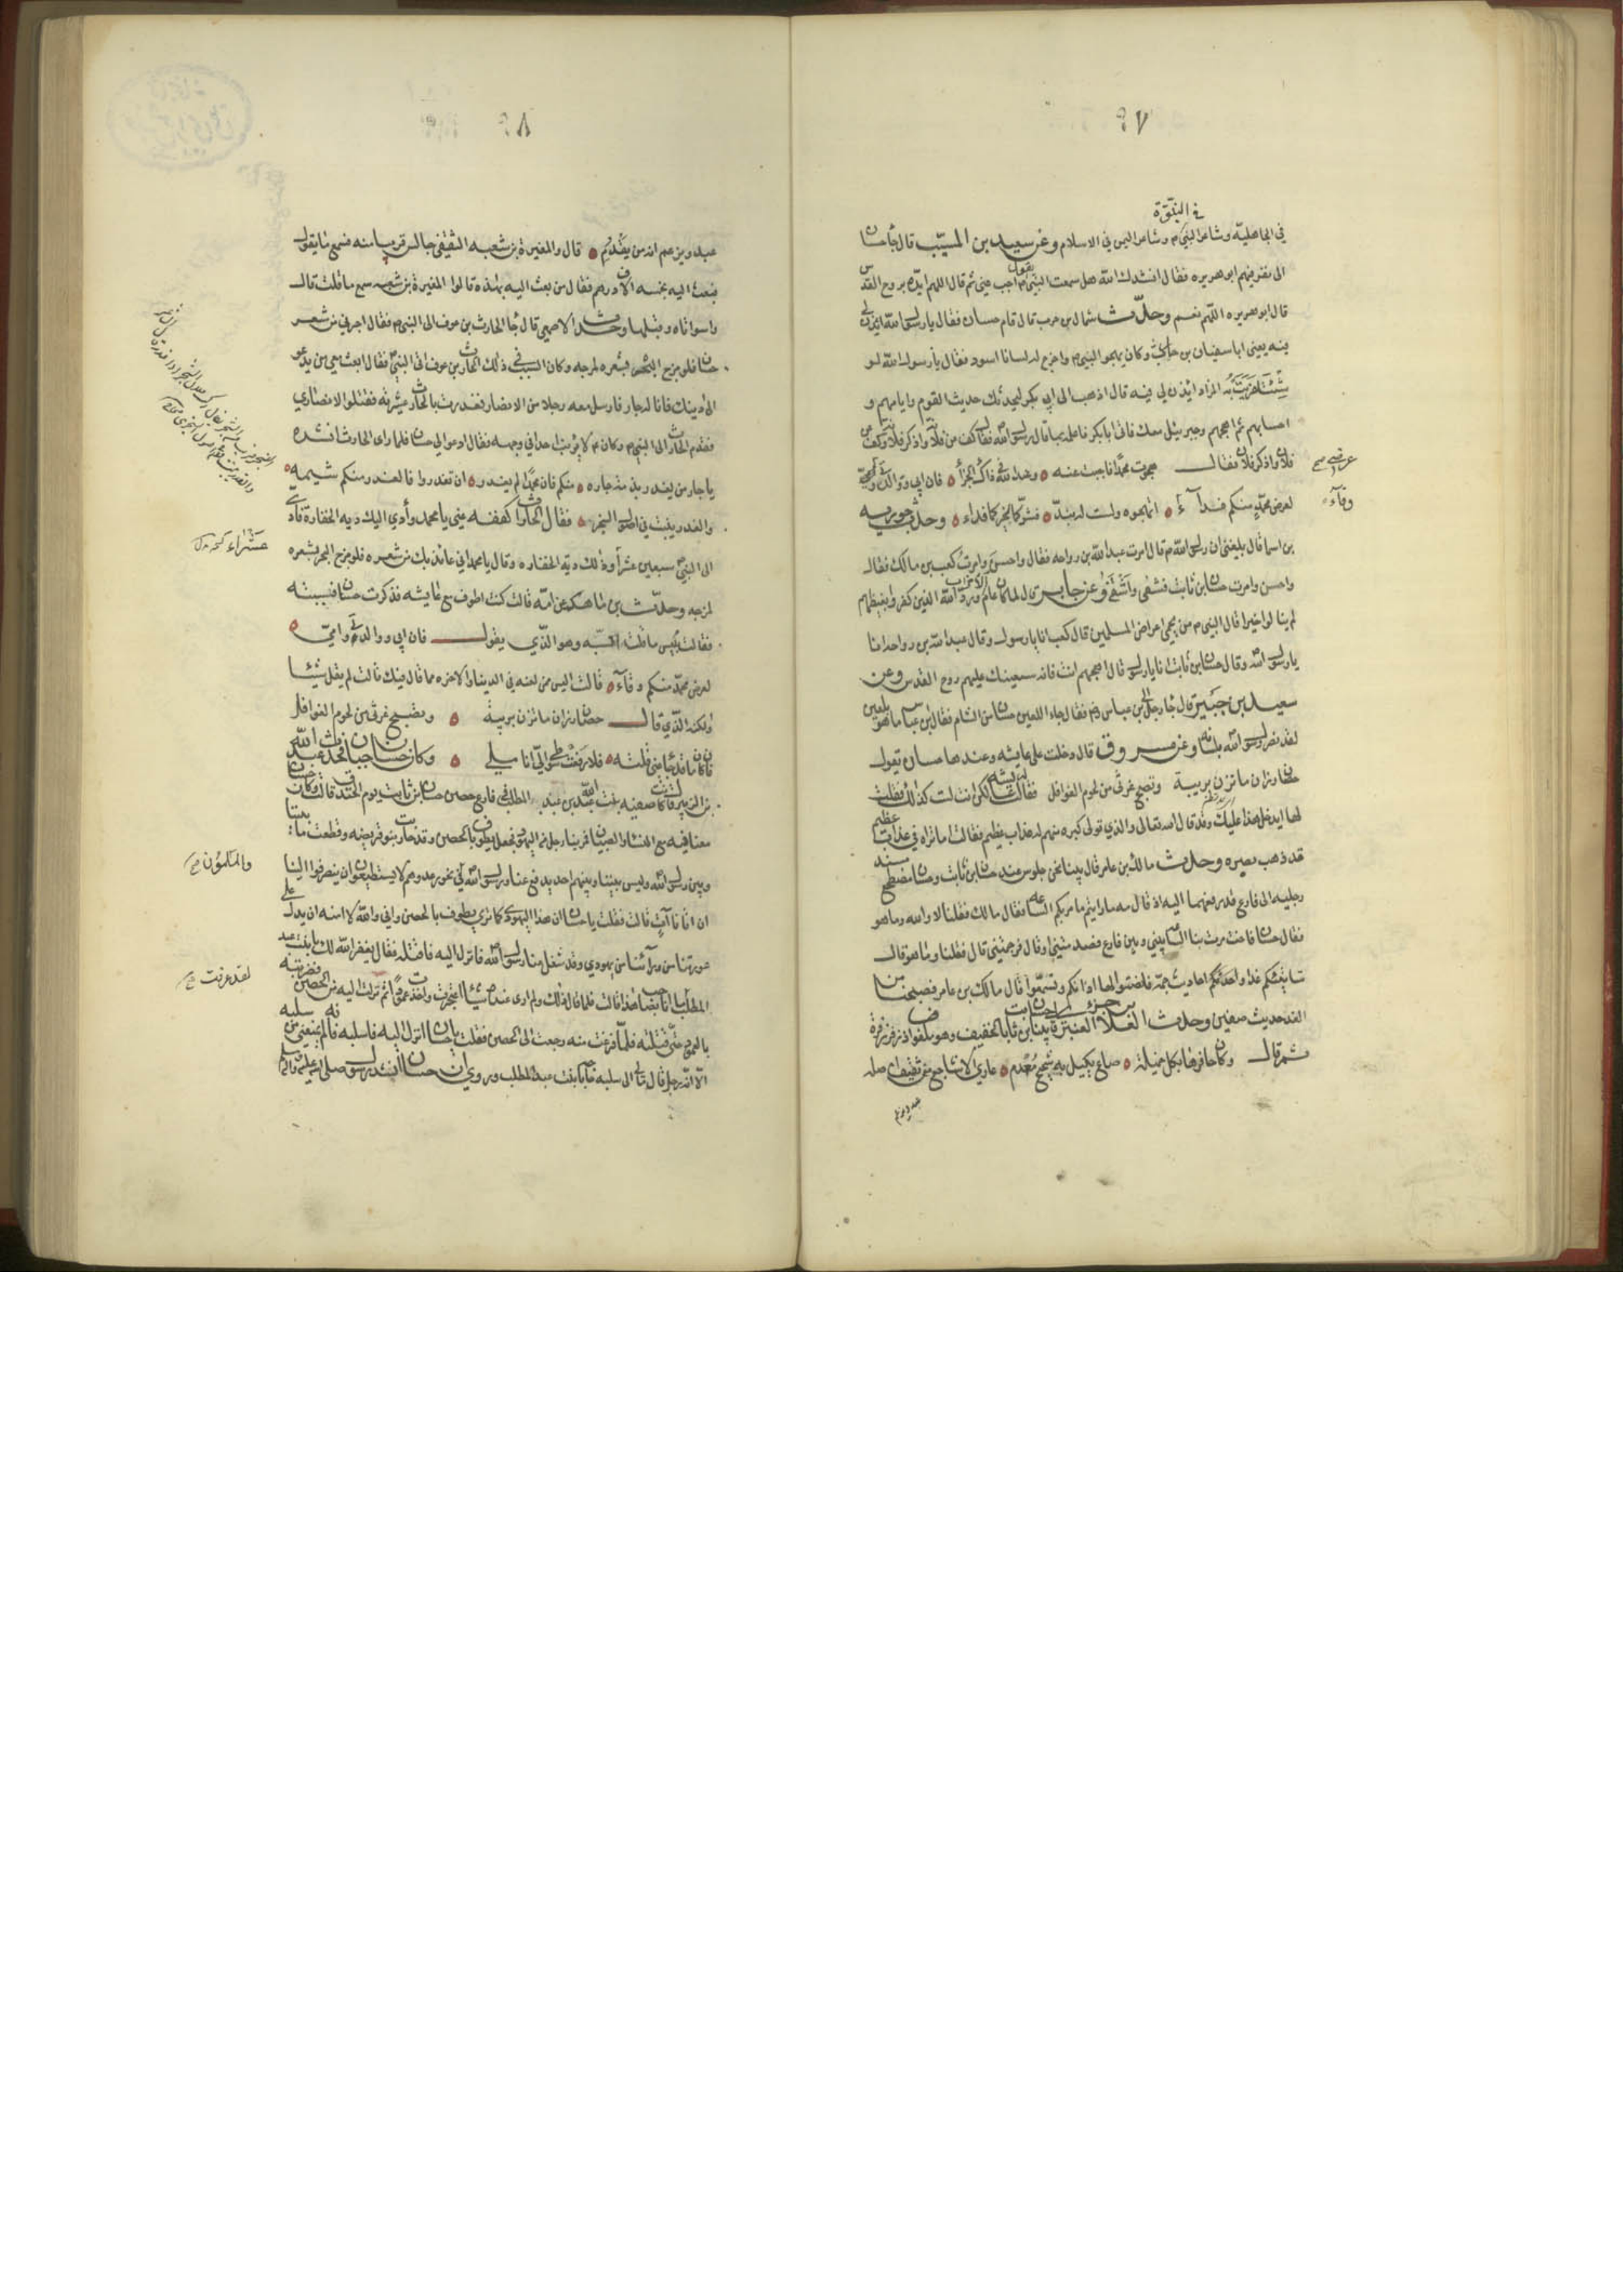 ٢٧
في النبوّة
في الجاهلية وشاعر النبي م وشاعر اليمن في الاسلام وعن سعيد بن المسيّب قال جا حسان
الى نفر فيهم ابو هريره فقال انشدك الله هل سمعت النبي م يقول اجب عني ثم قال اللهم ايّده بروح القدس
قال ابو هريره اللهم نعم وحدّث سماك بن حرب قال قام حسان فقال يا رسول الله ايذن لي
فيه يعني ابا سفيان بن حارث وكان يهجو النبي م واخرج له لسانا اسود فقال يا رسول الله لو
شئت لفريت به المزاد ائذن لي فيه قال اذهب الى ابي بكر ليحدثك حديث القوم وايامهم و
احسابهم ثم اهجهم وجبريل معك فاتى ابا بكر فاعلمه بما قال رسول الله فقال كف عن فلانة واذكر فلانة وكف عن
فلان واذكر فلان فقال هجوت محمدا فاجبت عنه وعند الله في ذاك الجزأ فان ابي ووالدتي وعرضي
لعرض محمد منكم فداء اتهجوه ولست له بندّ فشركما لخيركما فداء وحدث جويريه
عرضي صح
وقآء
بن اسما قال بلغني ان رسول الله م قال امرت عبد الله بن رواحه فقال واحسن وامرت كعب بن مالك فقال
واحسن وامرت حسان بن ثابت فشفى واشتفى وعن جابر قال لما كان عام الاحزاب وردّ الله الذين كفروا بغيظهم
لم ينالوا خيرا قال النبي م من يحمي اعراض المسلمين قال كعب انا يا رسول وقال عبد الله بن رواحه انا
يا رسول الله وقال حسان بن ثابت انا يا رسول قال اهجهم انت فانه سيعينك عليهم روح القدس وعن
سعيد بن جبير قال جا رجل الى ابن عباس رض فقال جا اللعين حسان من الشام فقال ابن عباس ما هو بلعين
لقد نصر رسول الله بلسانه وعن مسروق قال دخلت على عايشه وعندها حسان يقول
حصان رزان ما تزن بريبة وتصبح غرثى من لحوم الغوافل فقالت له عايشه لكن انت لست كذلك فقلت
لها ايدخل هذا عليك وقد قال الله تعالى والذي تولى كبره منهم له عذاب عظيم فقالت اما تراه في عذاب عظيم
قد ذهب بصره وحدث مالك بن عامر قال بينا نحن جلوس عند حسان بن ثابت وحسان مضطجع مسند
رجليه الى فارع قد رفعهما اليه اذ قال مه ما رايتم ما مر بكم الساعه فقال مالك فقلنا لا والله وما هو
فقال حسان فاخته مرت بنا الساعه بيني وبين فارع فصدمتني او قال فزحمتني قال فقلنا وما هو قال
ستاتيكم غدا احاديث جمة فاصغوا لها اذانكم وتسمعوا قال مالك بن عامر فصبحنا من
الغد حديث صفين وحدث العلاء بن جزء العنبري قال بينا حسان بن ثابت بالخيف وهو مكفوف اذ زفر زفرة
ثم قال وكان حافرها بكل خميلة صاع يكيل به شحيح معدم عاري الاشاجع من ثقيف اصله
عبد ويزعم
٢٨
عبد ويزعم انه من يقدم قال والمغيرة بن شعبه الثقفي جالس قريبا منه فسمع ما يقول
فبعث اليه بخمسه الاف درهم فقال من بعث اليه بهذه قالوا المغيرة بن شعبه سمع ما قلت قال
واسوأتاه وقبلها وحدث الاصمعي قال جا الحارث بن عوف الى النبي م فقال اجرني من شعر
حسان فلو مزج البحر بشعره لمزجه وكان السبب في ذلك ان الحارث بن عوف اتى النبي م فقال ابعث معي من يدعو
الى دينك فانا له جار فارسل معه رجلا من الانصار فغدرت بالحارث عشيرته فقتلوا الانصاري
فقدم الحارث الى النبي م وكان م لا يؤنب احدا في وجهه فقال ادعوا لي حسان فلما راى الحارث انشده
يا جار من يغدر بذمة جاره منكم فان محمدا لم يغدر ان تغدروا فالغدر منكم شيمة
والغدر ينبت في اصول السخبر فقال الحارث اكففه عني يا محمد وأدي اليك ديه الخفارة فادى
الى النبي سبعين عشراً وذلك دية الخفاره وقال يا محمد اني عائذ بك من شعره فلو مزج البحر بشعره
عشراء
لمزجه وحدّث بن ماهك عن امّه قالت كنت اطوف مع عايشه فذكرت حسان فسببته
فقالت بئس ما قلت اتسبّيه وهو الذي يقول فان ابي ووالدتي وعرضي
لعرض محمد منكم وقآء قالت اليس ممن لعنه في الدنيا والاخره مما قال فيك قالت لم يقل شيئا
ولكنه الذي قال حصان رزان ما تزن بريبة وتصبح غرثى من لحوم الغوافل
فان كان ما قد جا عني قلته فلا رفعت سوطي اليّ اناملي وكان حسان جبانا فحدث عبد الله
بن الزبير قال كانت صفيه بنت عبد المطلب في فارع حصن حسان بن ثابت يوم الخندق قالت وكان حسان
معنا فيه مع النساء والصبيان فمر بنا رجل من اليهود فجعل يطوف بالحصن وقد حاربت بنو قريضه وقطعت ما بيننا
وبين رسول الله وليس بيننا وبينهم احد يدفع عنا ورسول الله في نحور عدوهم لا يستطيعون ان ينصرفوا الينا
والمسلمون صح
ان اتانا آت قالت فقلت يا حسان ان هذا اليهودي كما ترى يطوف بالحصن واني والله لا امنه ان يدل على
عورتنا من ورائنا من يهودي وقد شغل عنا رسول الله فانزل اليه فاقتله فقال يغفر الله لك يا بنت عبد
المطلب ما انا بصاحب هذا قالت فلما قال ذلك ولم ارى عنده شيئا اعتجرت واخذت عمودا ثم نزلت اليه من الحصن فضربته
لقد عرفت صح
بالعمود حتى قتلته فلما فرغت منه رجعت الى الحصن فقلت يا حسان انزل اليه فاسلبه فانه لم يمنعني من سلبه
الا انه رجل قال مالي الى سلبه حاجة يا بنت عبد المطلب وروي ان حسان انشد رسول الله صلى الله عليه واله